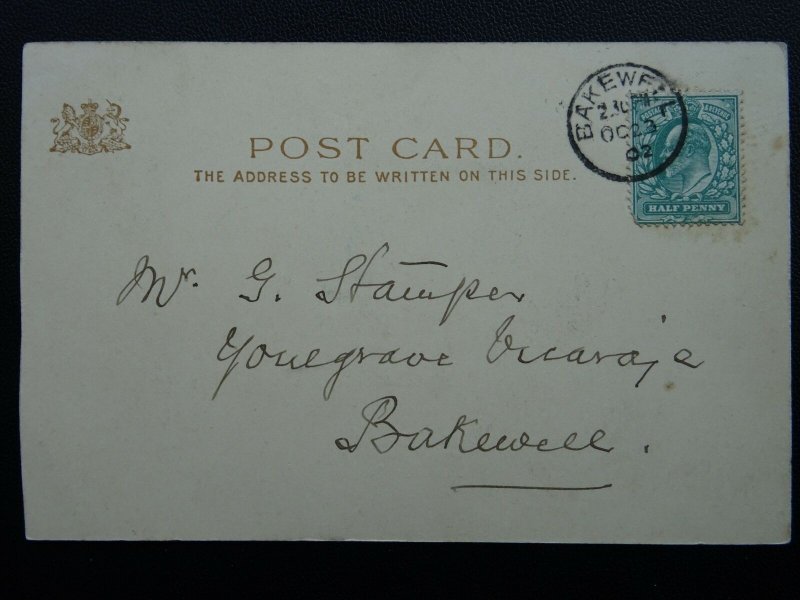 BAKEWELL
2.30 PM
OC 23
02
HALF PENNY
POST CARD.
THE ADDRESS TO BE WRITTEN ON THIS SIDE.
Mr. G. Stamper
Youlgrave Vicarage
Bakewell.